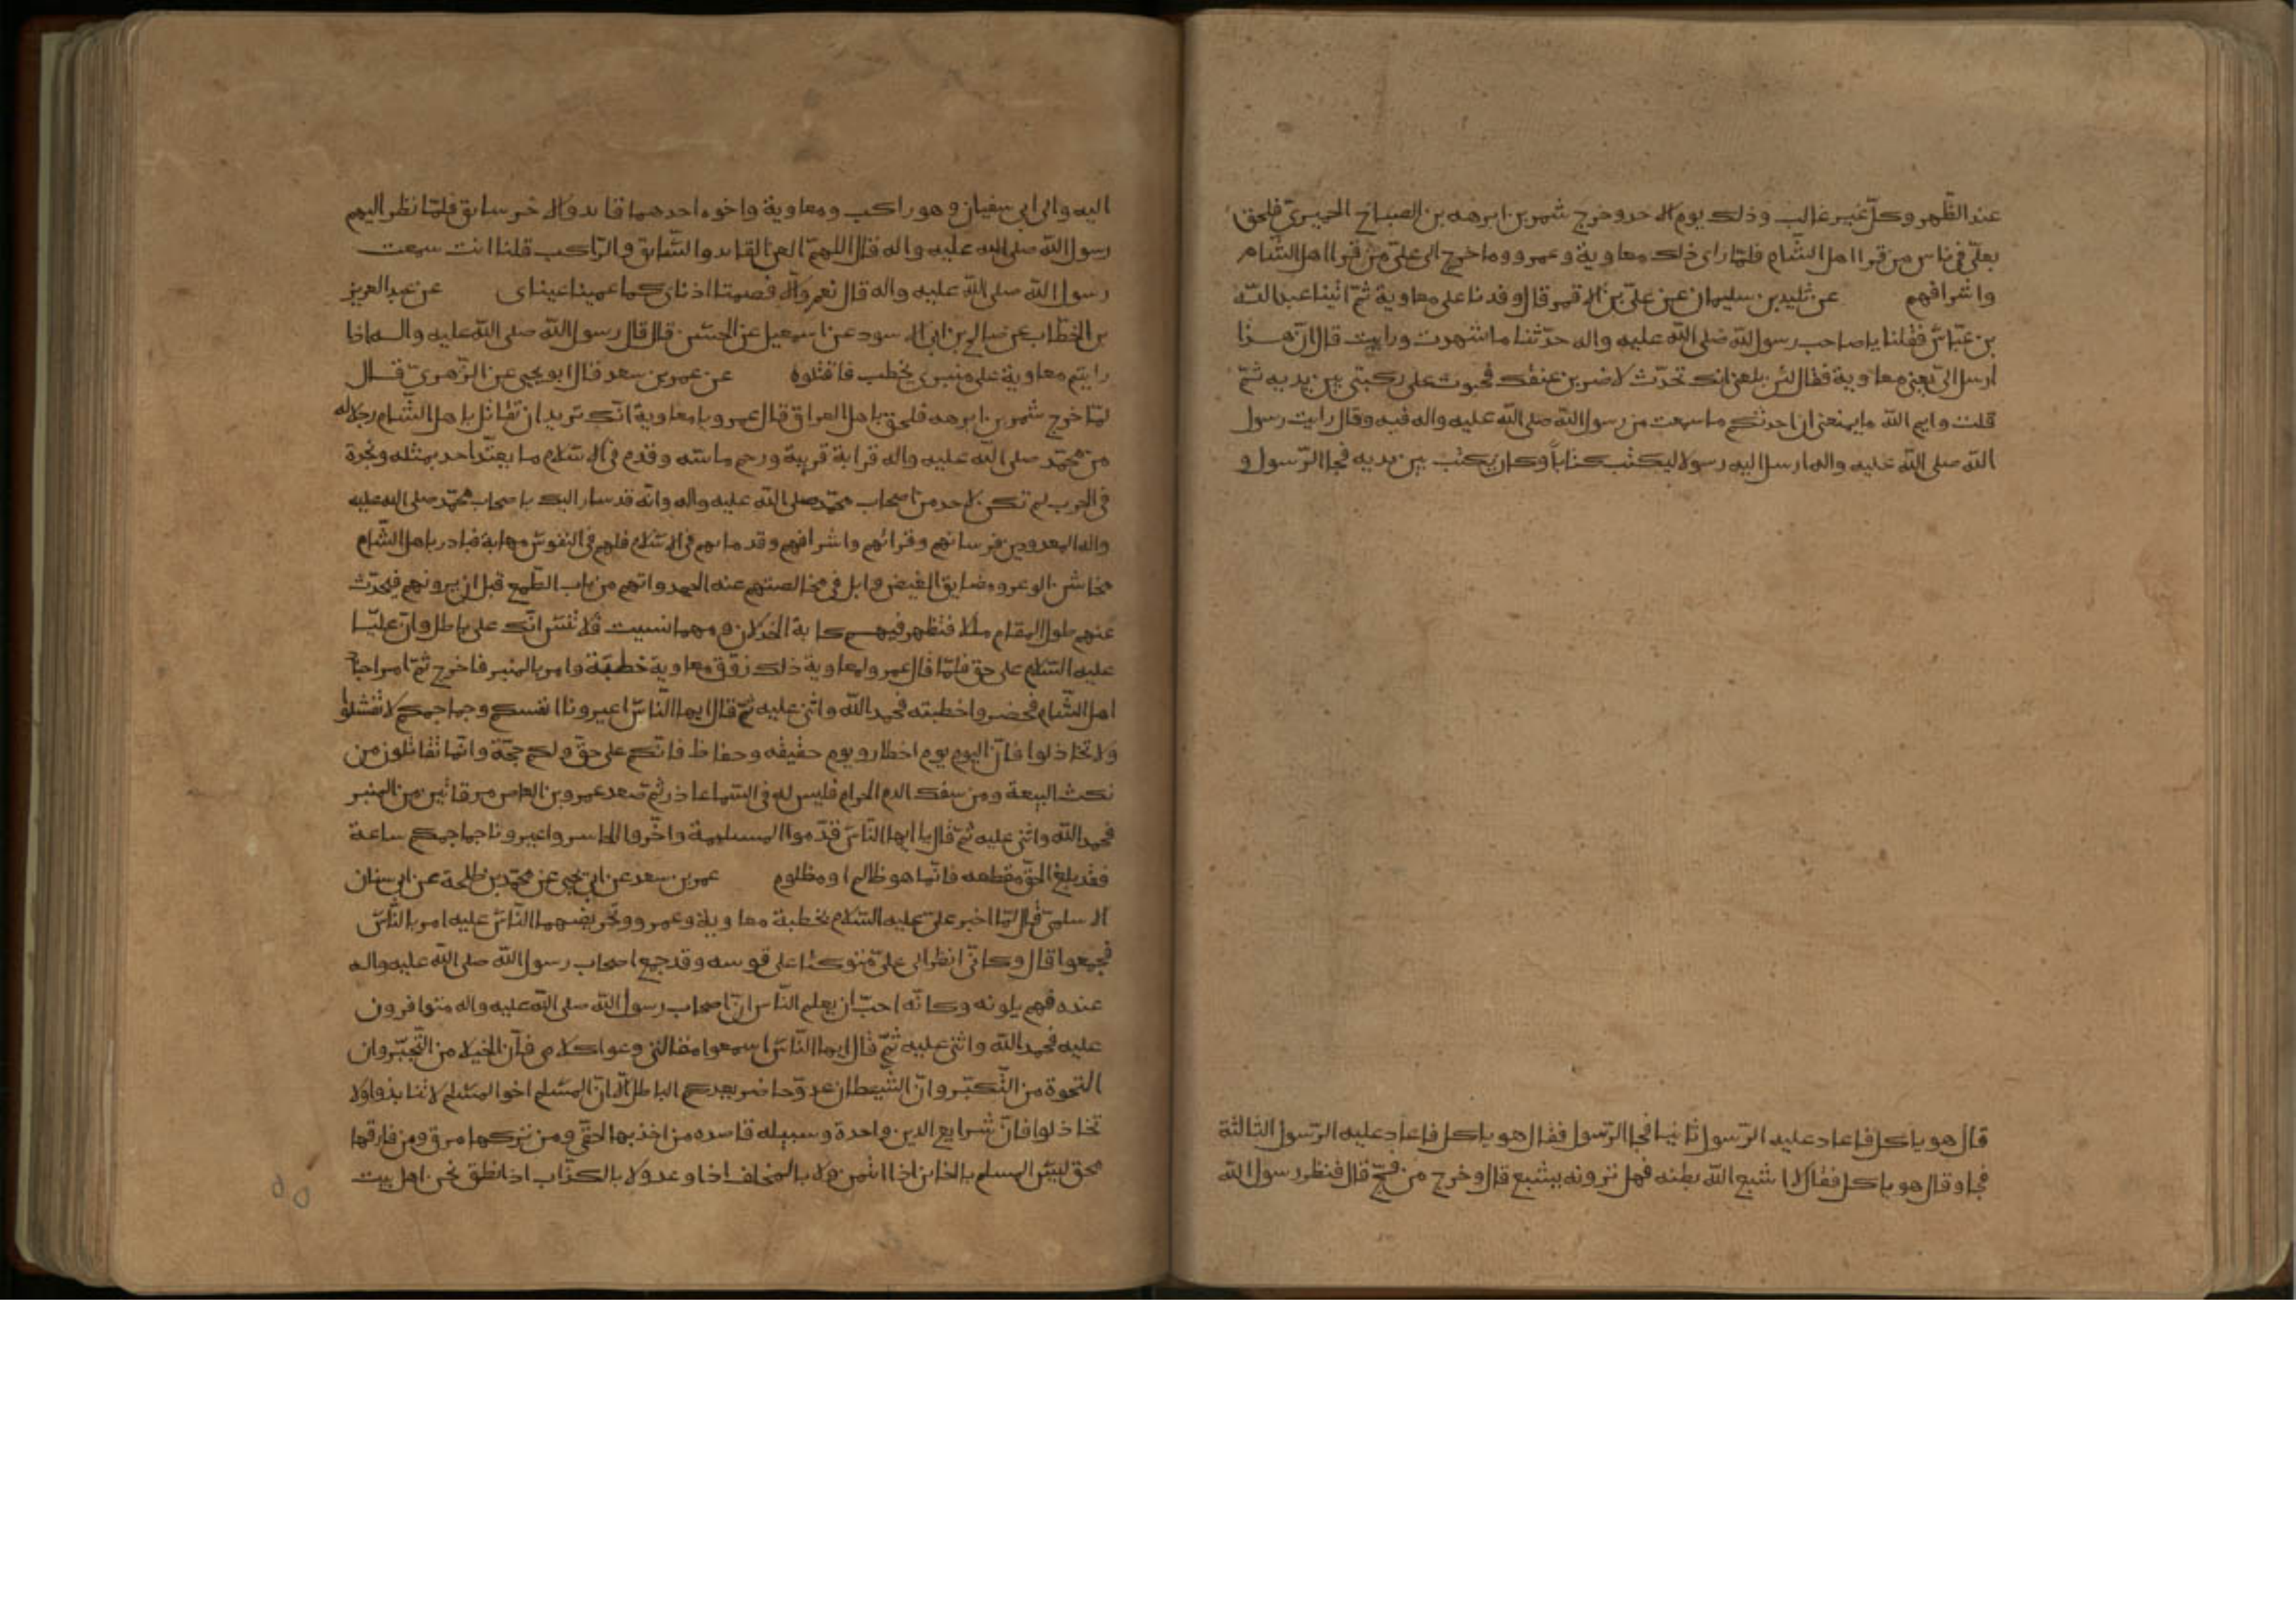 عند الظهر وكل غير غالب وذلك يوم الاحد وخرج شمر بن ابرهه بن الصباح الحميري فلحق
بعلي في ناس من قرا اهل الشام فلما راى ذلك معاوية وعمرو وما خرج الى علي من قرا اهل الشام
واشرافهم عن تليد بن سليمان عن علي بن الاقمر قال وفدنا على معاوية ثم اتينا عبد الله
بن عباس فقلنا يا صاحب رسول الله صلى الله عليه واله حدثنا ما شهدت ورايت قال ان هذا
ارسل الي يعني معاوية فقال لئن بلغني انك تحدث لاضربن عنقك فجبوت على ركبتي بين يديه ثم
قلت وايم الله ما يمنعني ان احدثكم ما سمعت من رسول الله صلى الله عليه واله فيه وقال رايت رسول
الله صلى الله عليه واله ارسل اليه رسولا ليكتب كتابا وكان يكتب بين يديه فجا الرسول و
قال هو ياكل فاعاد عليه الرسول ثانيا فجا الرسول فقال هو ياكل فاعاد عليه الرسول الثالثة
فجا وقال هو ياكل فقال لا اشبع الله بطنه فهل ترونه يشبع قال وخرج من فج قال فنظر رسول الله
اليه والى ابي سفيان وهو راكب ومعاوية واخوه احدهما قايد والاخر سايق فلما نظر اليهم
رسول الله صلى الله عليه واله قال اللهم العن القايد والسايق والراكب قلنا انت سمعت
رسول الله صلى الله عليه واله قال نعم والا فصمتا اذناي كما عميتا عيناي عن عبد العزيز
بن الخطاب عن صالح بن ابي الاسود عن اسمعيل عن الحسن قال قال رسول الله صلى الله عليه واله اذا
رايتم معاوية على منبري يخطب فاقتلوه عن عمر بن سعد قال ابو يحيى عن الزهري قال
لما خرج شمر بن ابرهه فلحق باهل العراق قال عمرو يا معاوية انك تريد ان تقاتل باهل الشام رجلا له
من محمد صلى الله عليه واله قرابة قريبة ورحم ماسه وقدم في الاسلام ما يعتد احد بمثله ونجدة
في الحرب لم تكن لاحد من اصحاب محمد صلى الله عليه واله وانه قد سار اليك باصحاب محمد صلى الله عليه
واله المعدودين فرسانهم وقرائهم واشرافهم وقدمائهم في الاسلام فلهم في النفوس مهابة فبادر باهل الشام
مخاشن الوعر ومضايق الغيض عنه الجهد واتهم من باب الطمع قبل ان يرونهم فيحدث
عنهم طول المقام مللا فتظهر فيهم كابة الخذلان ومهما نسيت فلا تنس انك على باطل وان عليا
عليه السلام على حق فلما قال عمرو لمعاوية ذلك زوق معاوية خطبة وامر بالمنبر فاخرج ثم امر اجناد
اهل الشام فحضروا خطبته فحمد الله واثنى عليه ثم قال ايها الناس اعيرونا انفسكم وجماجمكم لا تفشلوا
ولا تخاذلوا فان اليوم يوم اخطار ويوم حقيقه وحفاظ فانكم على حق ولكم حجة وانما تقاتلون من
نكث البيعة ومن سفك الدم الحرام فليس له في السما عاذر ثم صعد عمرو بن العاص مرقاتين من المنبر
فحمد الله واثنى عليه ثم قال يا ايها الناس قدموا المستلئمة واخروا الحاسر واعيرونا جماجمكم ساعة
فقد بلغ الحق مقطعه فانما هو ظالم او مظلوم عمر بن سعد عن ابي يحيى عن محمد بن طلحة عن ابي سنان
الاسلمي قال لما اخبر علي عليه السلام بخطبة معاوية وعمرو وتحريضهما الناس عليه امر بالناس
فجمعوا قال وكاني انظر الى علي متوكئا على قوسه وقد جمع اصحاب رسول الله صلى الله عليه واله
عنده فهم يلونه وكانه احب ان يعلم الناس ان اصحاب رسول الله صلى الله عليه واله متوافرون
عليه فحمد الله واثنى عليه ثم قال ايها الناس اسمعوا مقالتي وعوا كلامي فان الخيلا من التجبر وان
النخوة من التكبر وان الشيطان عدو حاضر يعدكم الباطل الا ان المسلم اخو المسلم لا تنابذوا ولا
تخاذلوا فان شرايع الدين واحدة وسبيله قاصده من اخذ بها الحق ومن تركها مرق ومن فارقها
محق ليس المسلم بالخاين اذا ائتمن ولا بالمخلف اذا وعد ولا بالكذاب اذا نطق نحن اهل بيت